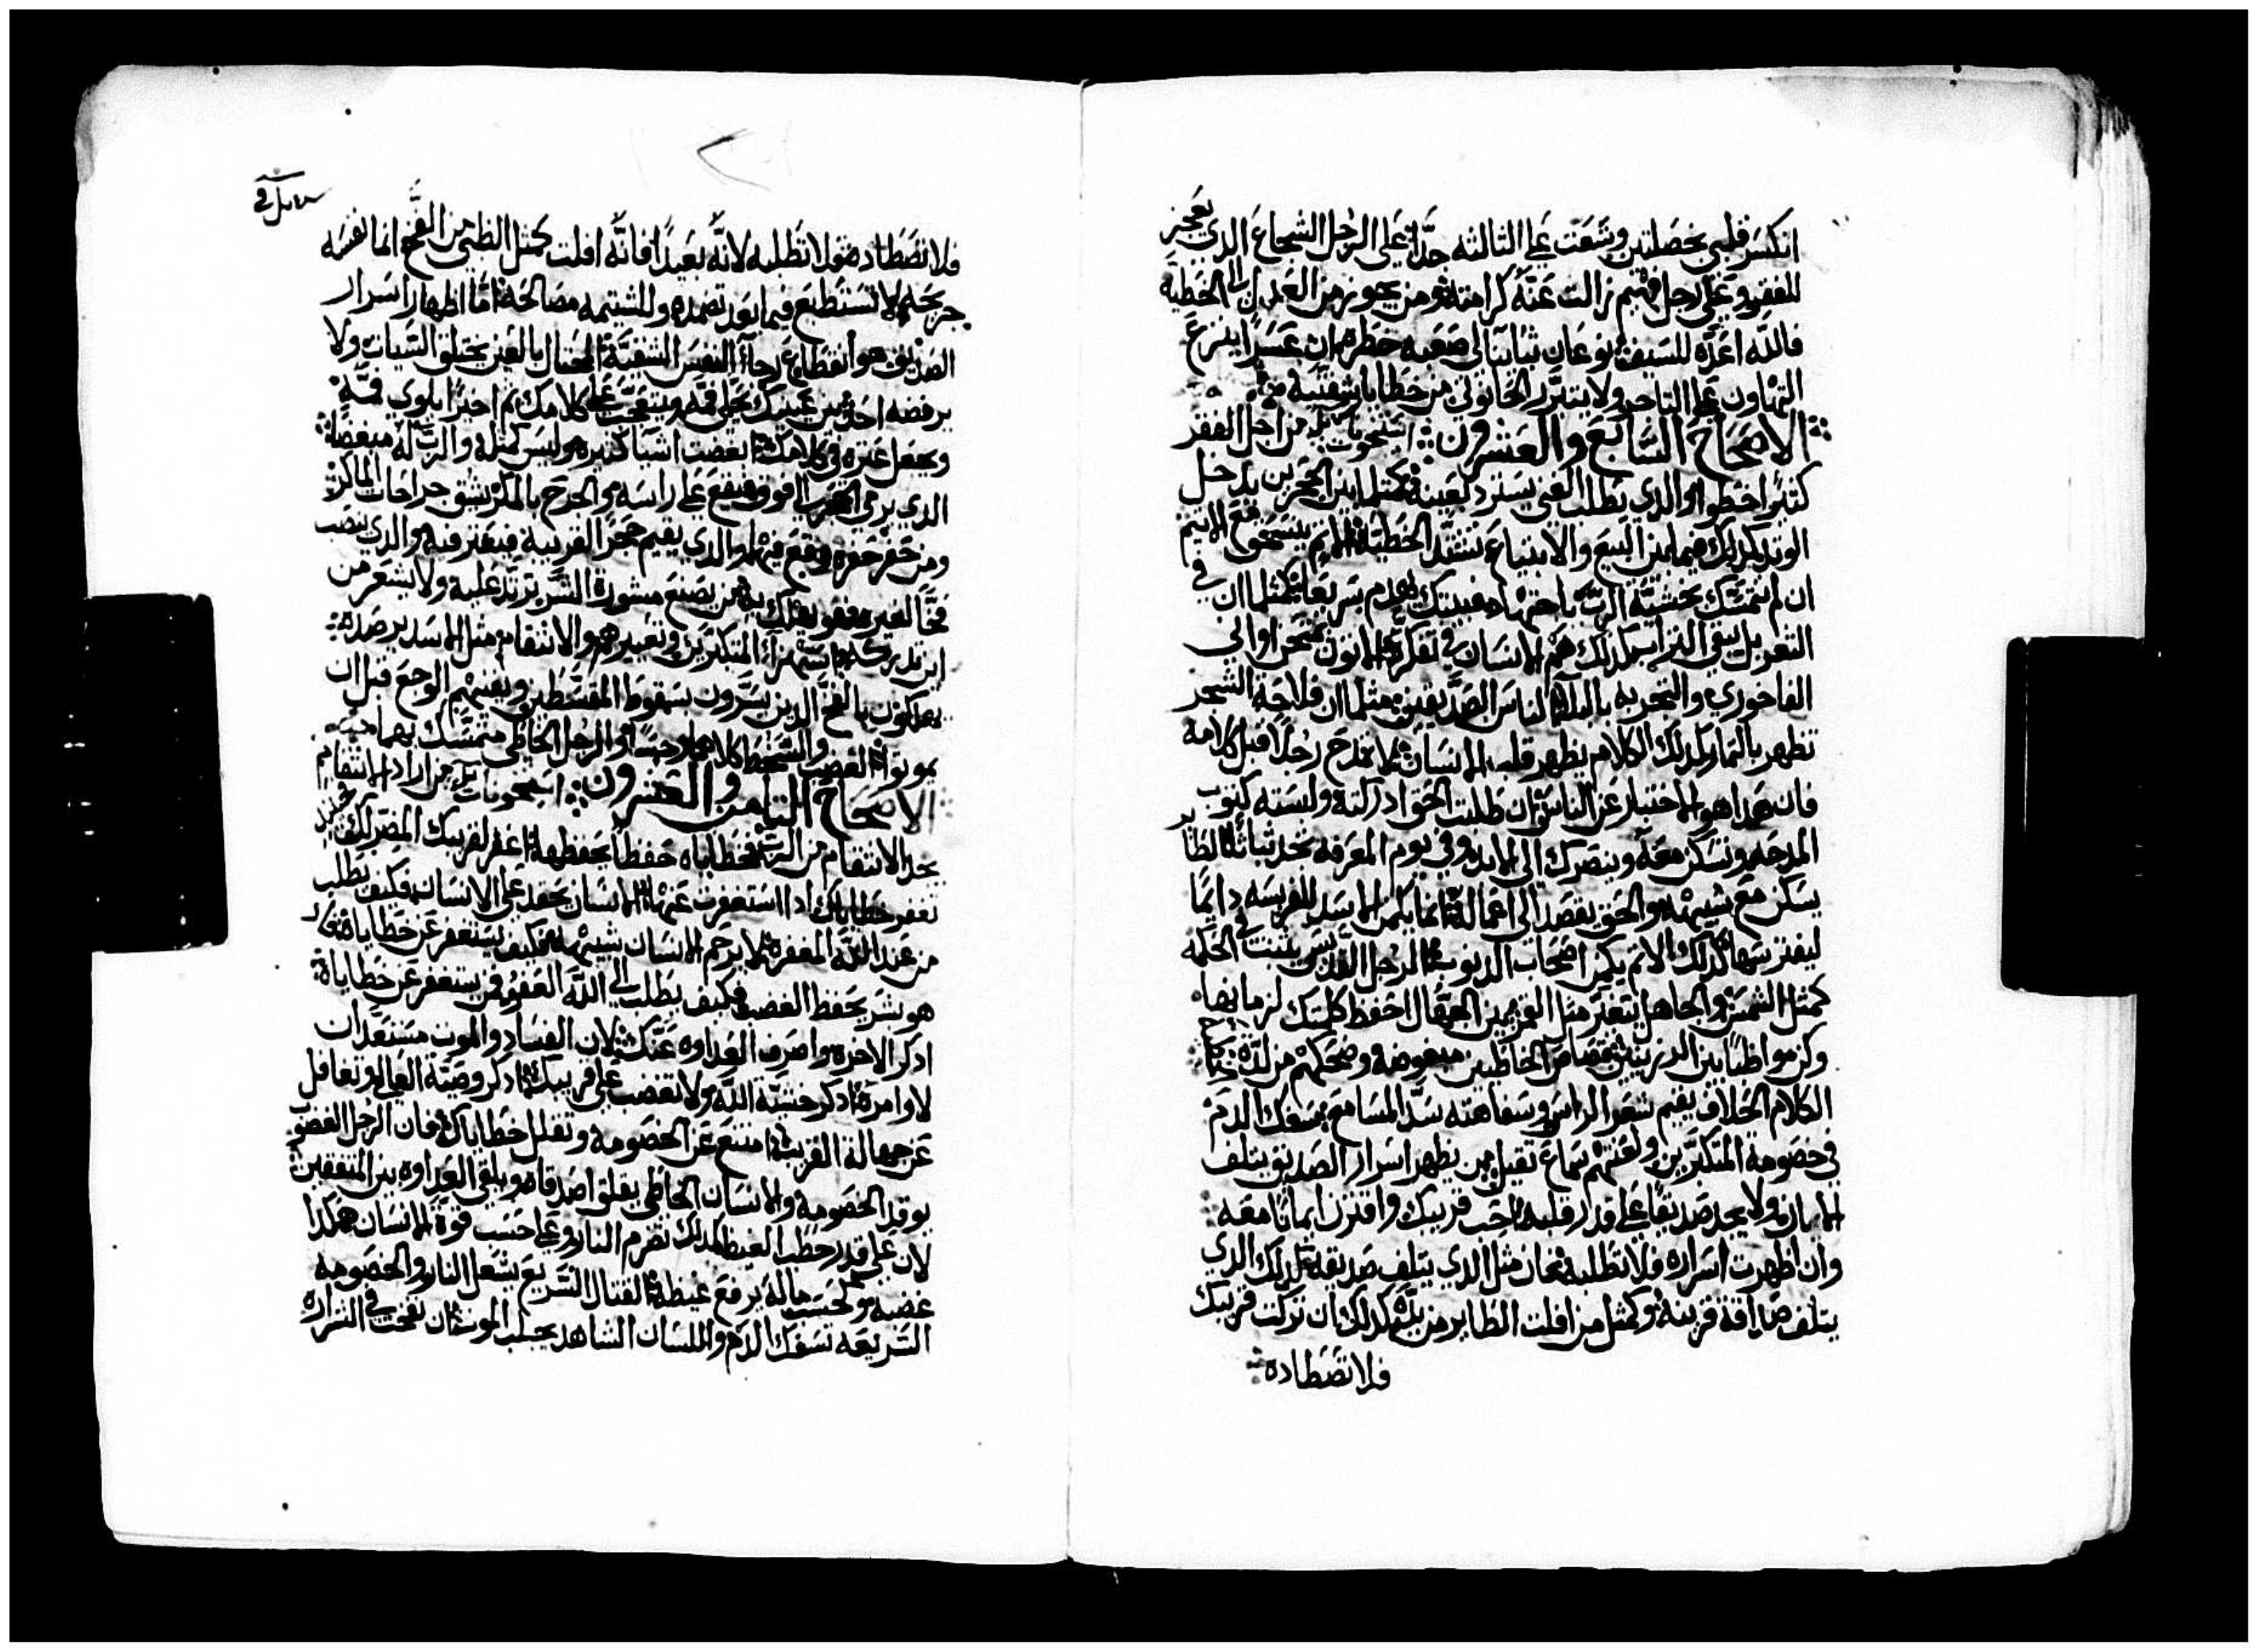 انكسر قلبي بخصلتين وشغت على الثالثه جدًّا على الرجل الشجاع الذي يعجز
للفقر وعلى رجل فهيم زالت عنه كرامته ومن يجوز من العدل الى الخطيه
فالله اعدّه للسيف نوعان تباينا لي صعبه خطره ان عسرًا ينزع
التهاون على التاجر ولا يتبرر الخانوتي من خطايا شفتيه
الاصحاح السابع والعشرون استيخون من اجل الفقر
كثيرًا اخطوا والذي يطلب الغنى يسترد لعينه فكمثل بين الحجرين يدخل
الوتد كذلك فيما بين البيع والابتياع تشتد الخطيه الاثم ينسحق مع الاثيم
ان لم تتمسّك بخشية الرب باجتهاد فبيتك يهدم سريعًا كمثلما ان في
التغربل يبقى التراب كذلك هم الانسان في تفكره الاتون تمتحن اواني
الفاخوري والتجربه بالبلايا الناس الصديقين مثلما ان فلاحة الشجر
تظهر بالثمار كذلك الكلام يظهر قلب الانسان لا تمدح رجلا قبل كلامه
فان هذا هو اختبار عن الناس ان طلبت الحق ادركته ولبسته كثوب
المدحه وتسكن معه وينصرك الى الابد وفي يوم المعرفه تجد ثباتًا الطاير
يسكن مع شبيهه والحق يقصد الى اعماله انما يكمن الاسد للفريسه دايمًا
ليفترسها كذلك والاثم يكمن اصحاب الذنوب الرجل القديس يثبت في الحكمه
كمثل الشمس والجاهل يتغير مثل القمر بين الجهال احفظ كلمتك لزمانها
وكن مواظبًا بين الرزينين قصاص الخاطيين مبغوضه وضحكهم من لذّة
الكلام الخلاف يقيم شعر الراس وسفاهته سدّ المسامع سفك الدم
في خصومة المتكبرين ولعنتهم سماع ثقيل من يظهر اسرار الصديق يتلف
الامانه ولا يجد صديقًا على قدر قلبه احبب قريبك واقترن ايمانا معه
وان اظهرت اسراره فلا تطلبه فان مثل الذي يتلف صديقه كذلك الذي
يتلف صداقة قريبه وكمثل من افلت الطاير من يده كذلك ان تركت قريبك
فلا تصطاده
فلا تصطاده فلا تطلبه لانّه بعيدًا فانّه افلت كمثل الظبي من الفخ انما نفسه
جريحه لا تستطيع فيما بعد تضمده وللشتيمه مصالحه امّا اظهار اسرار
الصديق هو انقطاع رجا النفس الشقيّه المحتال بالعين يختلق السيات ولا
يرفضه احد بين عينيك يحلي فمه ويتعجب على كلامك ثم اخيرًا يلوي فمّه
ويجعل عثره في كلامك ابغضت اشيا كثيره وليس كمثله والرب له مبغضًا
الذي يرمي الحجر الى فوق فيقع على راسه والجرح بالمكر يشق جراحات الماكر
ومن حفر حفره وقع فيها والذي يقيم حجر القريبه فيعثر فيه والذي ينصب
فخًا لغيره فهو يهلك به من يصنع مشورة الشر ترتد عليه ولا يشعر من
اين تدركه استهزاء المتكبرين وتعييرهم والانتقام مثل الاسد يرصده
يهلكون بالفخ الذين يسرّون بسقوط المقسطين ويفنيهم الوجع قبل ان
يموتوا الغضب والسخط كلاهما رجسًا والرجل الخاطي متمسّك بهما
الاصحاح الثامن والعشرون استيخون من اراد الانتقام
يجد الانتقام من الرب وخطاياه حفظًا يحفظها اغفر لقريبك المضر لك حينيذ
تغفر خطاياك اذا استغفرت عنها الانسان يحقد على الانسان فكيف يطلب
من عند الله المغفره لا يرحم الانسان شبيهه فكيف يستغفر عن خطاياه
هو بشر يحفظ الغضب فكيف يطلب الى الله العفو فمن يستغفر عن خطاياه
اذكر الاخره واصرف العداوه عنك لان الفساد والموت مستعدان
لاوامره اذكر خشية الله ولا تغضب على قريبك اذكر وصية العالي وتغافل
عن جهالة القريب امتنع عن الخصومة وتقلل خطاياك فان الرجل الغضوب
يوقد الخصومة والانسان الخاطي يقلق اصدقاه ويلقي العداوه بين المتفقين
لان على قدر حطب الغيظ كذلك تضرم النار وعلى حسب قوة الانسان هكذا
غضبه وكحسب ماله يرفع غيظه القتال السريع يشعل النار والخصومه
السريعه تسفك الدم واللسان الشاهد يجلب الموت ان نفخت في الشراره